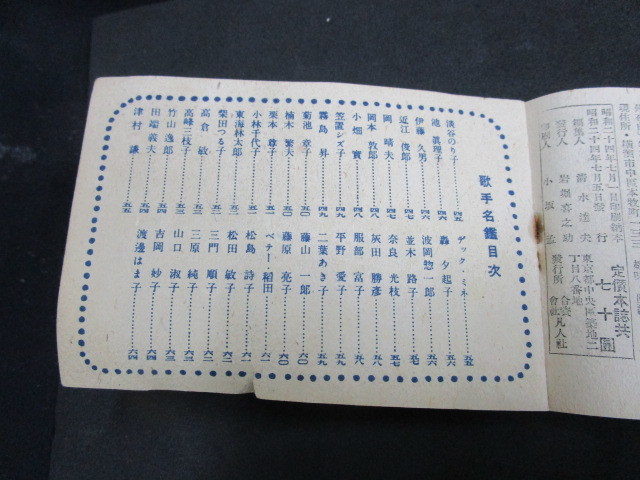 歌手名鑑目次
淡谷のり子 四五
池眞理子 四六
伊藤久男 四六
近江俊郎 四七
岡晴夫 四七
岡本敦郎 四八
小畑實 四八
笠置シズ子 四九
霧島昇 四九
菊池章子 五〇
楠木繁夫 五〇
栗本尊子 五一
小林千代子 五一
東海林太郎
柴田つる子
高倉敏
高峰三枝子
竹山逸郎
田端義夫 五四
津村謙 五五
デック・ミネ 五五
轟夕起子 五六
波岡惣一郎 五六
並木路子 五七
奈良光枝 五七
灰田勝彦 五八
服部富子 五八
平野愛子 五九
二葉あき子 五九
藤山一郎 六〇
藤原亮子 六〇
ベテー・稲田 六一
松島詩子 六一
松田敏子 六二
三門順子 六二
三原純子 六三
山口淑子 六三
吉岡妙子 六四
渡邊はま子 六四
定價本誌共
七十圓
昭和二十四年七月一日印刷納本
昭和二十四年七月五日發行
編集人 清水達夫
發行人 岩堀喜之助
東京都中央區築地二
丁目八番地
發行所 合資會社凡人社